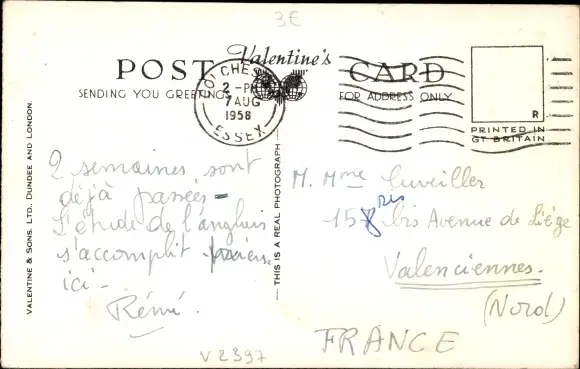 3€
Valentine's
POST CARD
SENDING YOU GREETINGS
FOR ADDRESS ONLY
COLCHESTER
2 - PM
7 AUG
1958
ESSEX
R
PRINTED IN
GT BRITAIN
VALENTINE & SONS. LTD. DUNDEE AND LONDON.
THIS IS A REAL PHOTOGRAPH
2 semaines sont
déjà passées -
L'étude de l'anglais
s'accomplit
ici -
Rémi.
M. Mme Cuveillier
15 bis Avenue de Liège
Valenciennes.
(Nord)
FRANCE
V2397